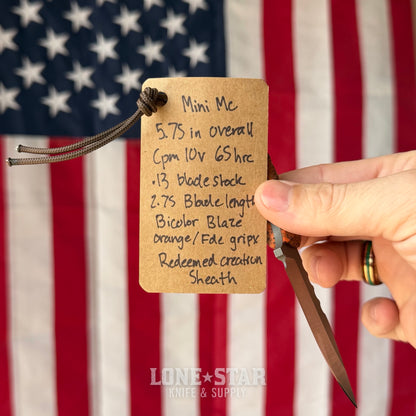 Mini Mc
5.75 in overall
Cpm 10v 65hrc
.13 bladestock
2.75 Blade length
Bicolor Blaze
orange/Fde gripx
Redeemed creation
Sheath
LONE★STAR
KNIFE & SUPPLY